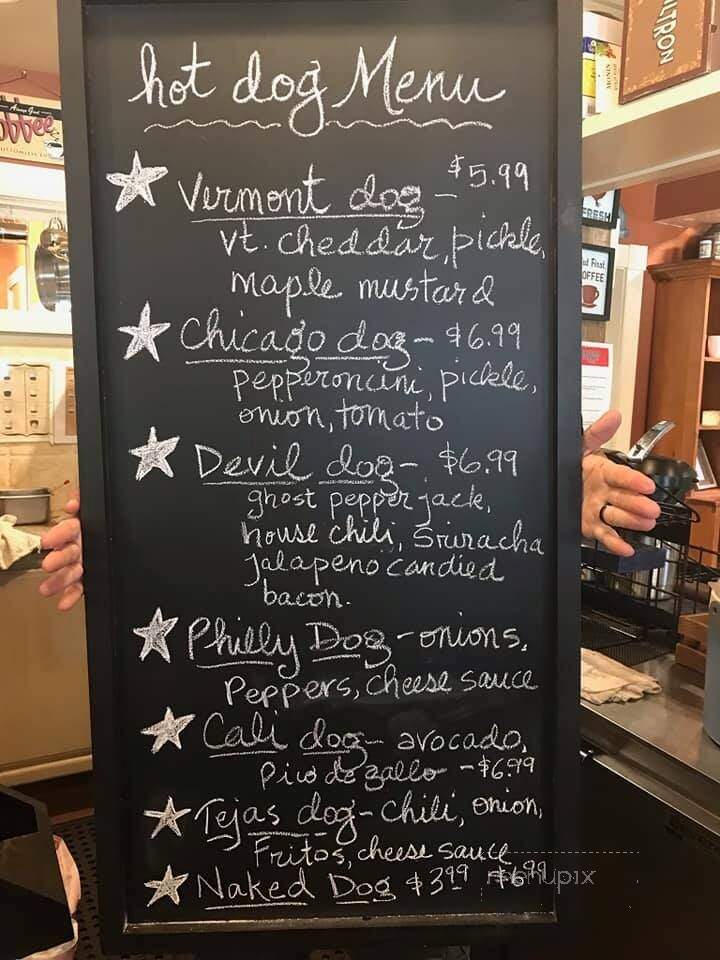 hot dog Menu
Vermont dog - $5.99
vt. cheddar, pickle,
maple mustard
Chicago dog - $6.99
pepperoncini, pickle,
onion, tomato
Devil dog - $6.99
ghost pepper jack,
house chili, Sriracha
jalapeno candied
bacon.
Philly Dog - onions,
Peppers, cheese sauce
Cali dog - avocado,
pico de gallo - $6.99
Tejas dog - chili, onion,
Fritos, cheese sauce
$6.99
Naked Dog $3.99
menupix
COFFEE
FRESH
First,
OFFEE